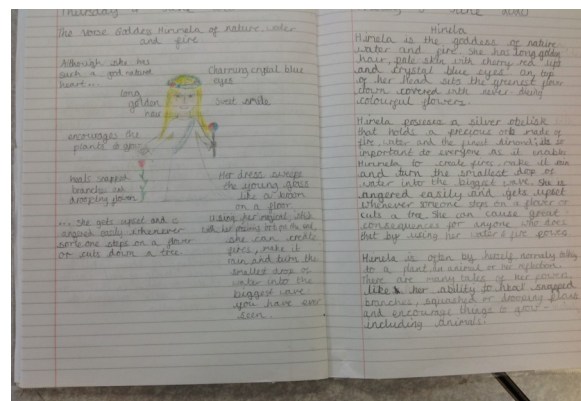 Thursday
The Norse Goddess Hinmela of nature, water
and fire
Although she has
such a god natured
heart...
long
golden
hair
Charming crystal blue
eyes
sweet smile
encourages the
plants to grow
heals snapped
branches and
drooping flowers
... She gets upset and is
angered easily whenever
someone steps on a flower
or cuts down a tree.
Her dress sweeps
the young grass
like a broom
on a floor
using her magical stick
with her precious orb on the end,
she can create
fires, make it
rain and turn the
smallest drop of
water into the
biggest wave
you have ever
seen...
Himela
Himela is the goddess of nature
water and fire. She has long golden
hair, pale skin with cherry red lips
and crystal blue eyes. on top
of her head sits the greenest flower
crown covered with never-dying
colourful flowers.
Himela possess a silver obelisk
that holds a precious orb made of
fire, water and the finest diamond; its so
important to everyone as it enables
Hinmela to create fires, make it rain
and turn the smallest drop of
water into the biggest wave. She is
angered easily and gets upset
whenever someone steps on a flower or
cuts a tree. She can cause great
consequences for anyone who does
that by using her water & fire powers.
Himela is often by herself normally talking
to a plant, an animal or her reflection.
There are many tales of her powers
like her ability to heal snapped
branches, squashed or drooping plants
and encourage things to grow -
including animals.